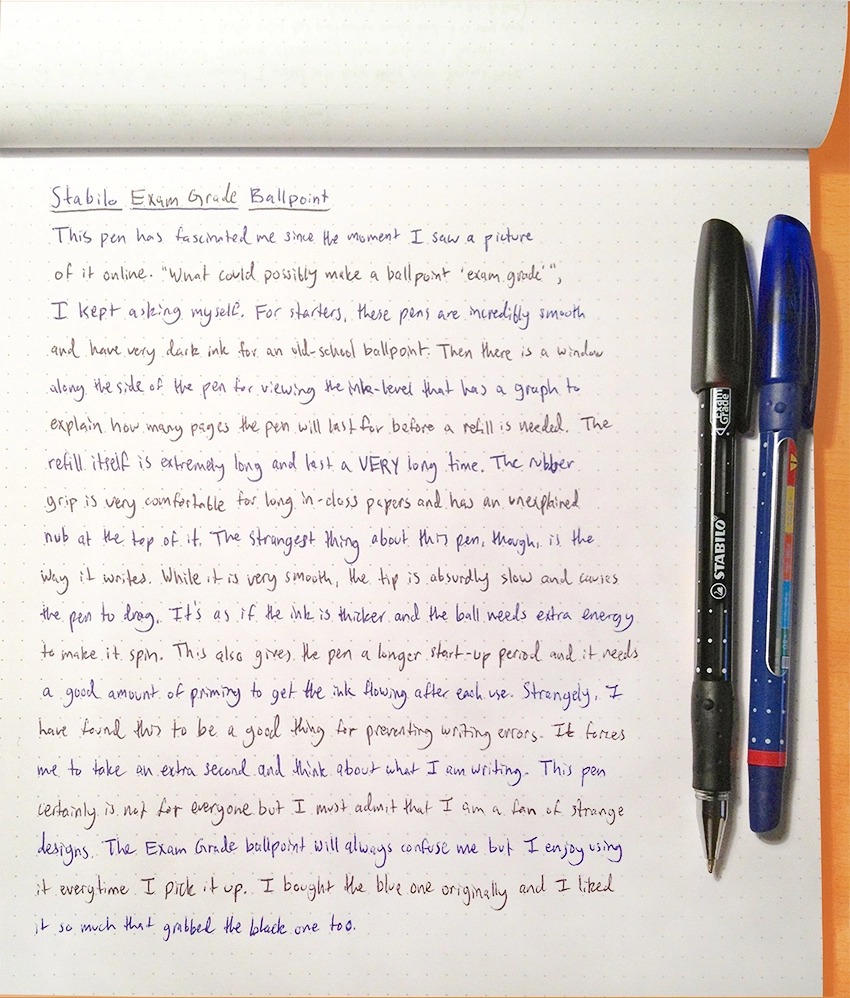 Stabilo Exam Grade Ballpoint
This pen has fascinated me since the moment I saw a picture
of it online. "What could possibly make a ballpoint 'exam grade'",
I kept asking myself. For starters, these pens are incredibly smooth
and have very dark ink for an old-school ballpoint. Then there is a window
along the side of the pen for viewing the ink-level that has a graph to
explain how many pages the pen will last for before a refill is needed. The
refill itself is extremely long and last a VERY long time. The rubber
grip is very comfortable for long in-class papers and has an unexplained
nub at the top of it. The strangest thing about this pen, though, is the
way it writes. While it is very smooth, the tip is absurdly slow and causes
the pen to drag. It's as if the ink is thicker and the ball needs extra energy
to make it spin. This also gives the pen a longer start-up period and it needs
a good amount of priming to get the ink flowing after each use. Strangely, I
have found this to be a good thing for preventing writing errors. It forces
me to take an extra second and think about what I am writing. This pen
certainly is not for everyone but I must admit that I am a fan of strange
designs. The Exam Grade ballpoint will always confuse me but I enjoy using
it everytime I pick it up. I bought the blue one originally and I liked
it so much that grabbed the black one too.
Exam
Grade
STABILO